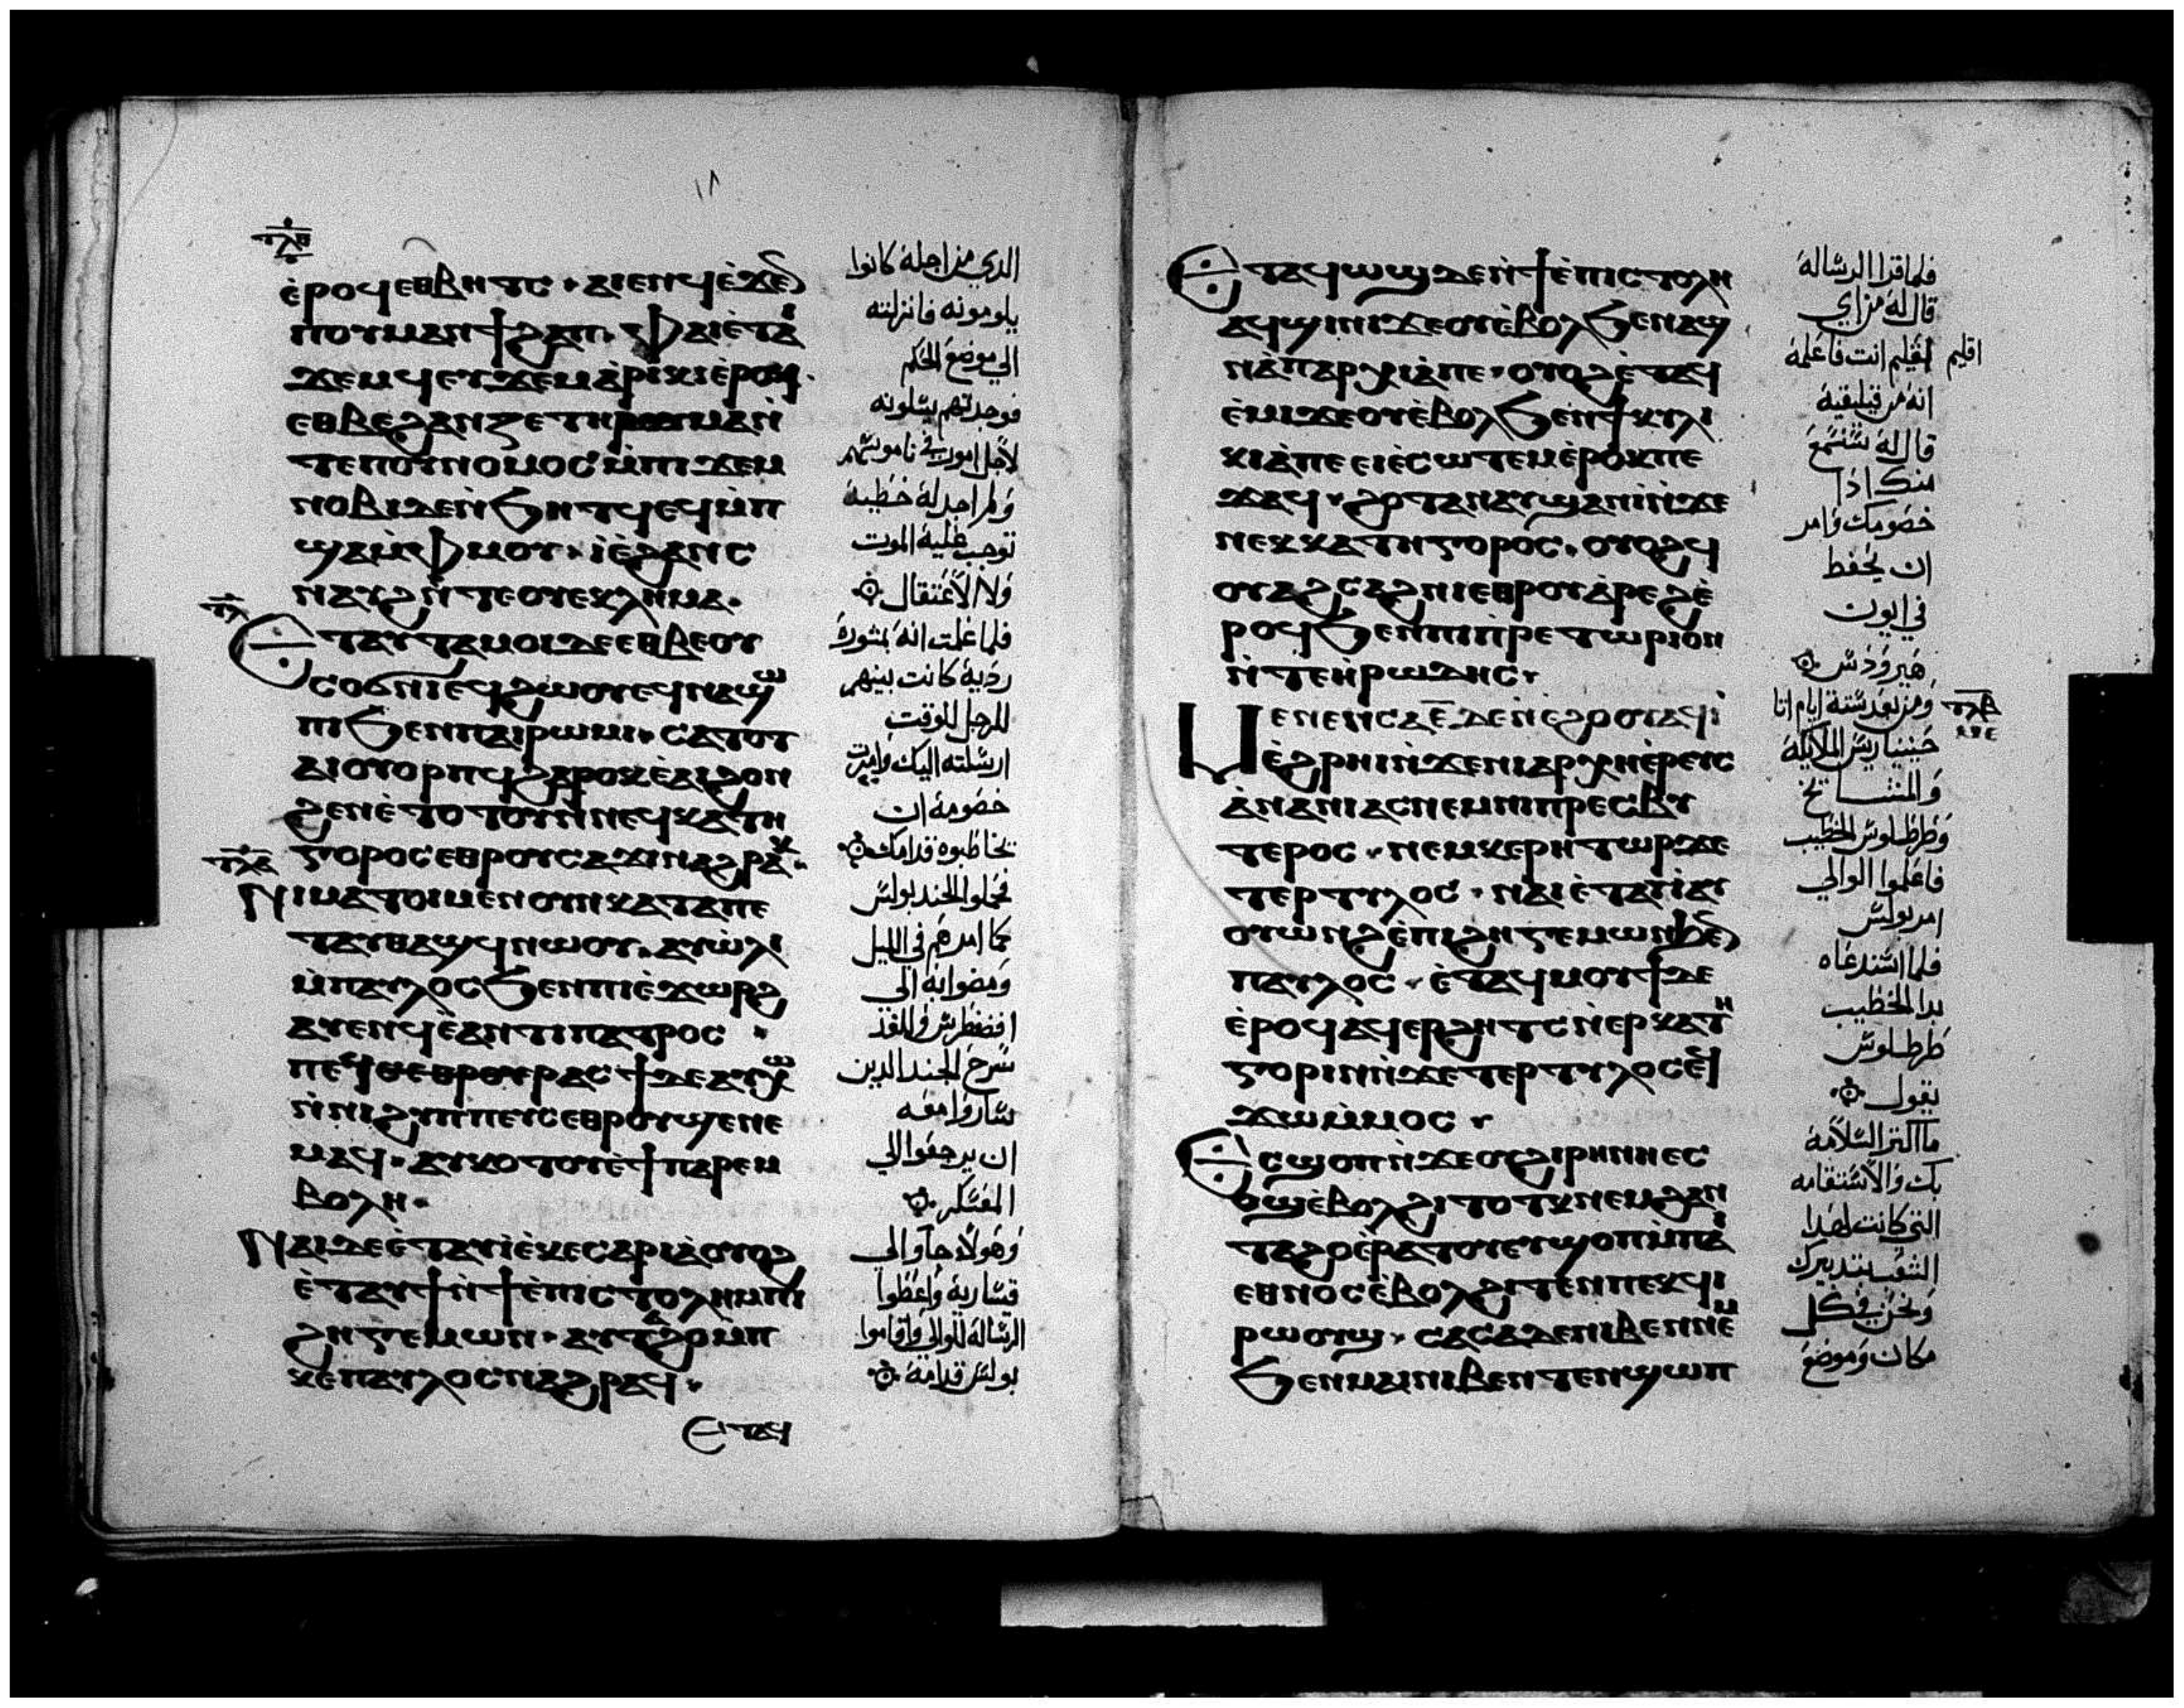 ١٨
ⲉ̀ⲣⲟϥⲉⲑⲃⲏⲧⲥ · ⲁⲓⲉⲛϥⲉ̀ϧⲣⲏⲓ
ⲡⲟⲩⲙⲁⲛϯϩⲁⲡ · ⲫⲁⲓⲉ̀ⲧⲁⲓ
ϫⲉⲙϥⲉⲩϫⲉⲙⲁⲣⲓⲕⲓⲉ̀ⲣⲟϥ ·
ⲉⲑⲃⲉϩⲁⲛⲍⲉⲧⲏⲙⲁⲛ̀
ⲧⲉⲡⲟⲩⲛⲟⲙⲟⲥⲙ̀ⲡⲓϫⲉⲙ
ⲛⲟⲃⲓⲇⲉⲛ̀ϧⲏⲧϥⲉϥⲙ̀ⲡ
ϣⲁⲙ̀ⲫⲙⲟⲩ · ⲓⲉ̀ϩⲁⲛⲥ
ⲛⲁⲩϩⲛ̀ⲧⲉⲟⲩⲉⲕⲗⲏⲙⲁ ·
ⲉⲧⲁⲩⲧⲁⲙⲟⲓⲇⲉⲉⲑⲃⲉⲟⲩ
ⲥⲟϭⲛⲓⲉϥϩⲱⲟⲩⲉϥⲛⲁϣⲱ
ⲡⲓϧⲉⲛⲡⲁⲓⲣⲱⲙⲓ · ⲥⲁⲧⲟⲧ
ⲁⲓⲟⲩⲟⲣⲡϥϩⲁⲣⲟⲕⲉ̀ⲁⲓϩⲟⲛ
ϩⲉⲛⲉ̀ⲧⲟⲧⲟⲩⲛ̀ⲛⲉϥⲕⲁⲧⲏ
ⲅⲟⲣⲟⲥⲉⲑⲣⲟⲩⲥⲁϫⲓⲛⲁϩⲣⲁⲕ ·
ⲛⲓⲙⲁⲧⲟⲓⲙⲉⲛⲟⲩⲛⲕⲁⲧⲁⲡⲉ
ⲧⲁⲩⲑⲁϣϥⲛⲱⲟⲩ · ⲁⲩⲱ̀ⲗⲓ
ⲙ̀ⲡⲁⲩⲗⲟⲥϧⲉⲛⲡⲓⲉ̀ϫⲱⲣϩ
ⲁⲩⲉⲛϥⲉ̀ⲁⲛⲧⲓⲡⲁⲧⲣⲟⲥ ·
ⲡⲉϥⲑⲉⲑⲣⲟⲩⲣⲁⲥϯⲇⲉⲁⲩⲭⲱ
ⲛ̀ⲛⲓϩⲩⲡⲡⲉⲩⲥⲉⲑⲣⲟⲩϣⲉⲛⲉ
ⲙⲁϥ · ⲁⲩⲕⲟⲧⲟⲩⲉ̀ϯⲡⲁⲣⲉⲙ
ⲃⲟⲗⲏ ·
ⲛⲁⲓⲇⲉⲉ̀ⲧⲁⲩⲓ̀ⲉ̀ⲕⲉⲥⲁⲣⲓⲁ̀ⲟⲩⲟϩ
ⲉ̀ⲧⲁⲩϯⲛ̀ϯⲉ̀ⲡⲓⲥⲧⲟⲗⲏⲙ̀ⲡⲓ
ϩⲏⲅⲉⲙⲱⲛ · ⲁⲩⲧⲁϩⲟⲙ̀ⲡ
ⲕⲉⲡⲁⲩⲗⲟⲥⲛⲁϩⲣⲁϥ ·
ⲉⲧⲁϥ
الدي من اجله كانوا
يلومونه فانزلته
الي موضع الحكم
فوجدتهم يسلونه
لاجل امور في ناموسهم
ولم اجد له خطيه
توجب عليه الموت
ولا الاعتقال
فلما علمت انه بمشورة
رديه كانت بينهم
للرجل للوقت
ارسلته اليك وامرت
خصومه ان
يخاطبوه قدامك
فحملوا الجند بولس
كما امرهم في الليل
ومضوا به الي
سرح الجند الدين
ساروا معه
ان يرجعوا الي
المعسكر
وهولاء جاوا الي
قيسارية واعطوا
الرسالة للوالي واقاموا
بولس قدامه
ⲉⲧⲁϥⲱϣⲇⲉⲛ̀ϯⲉ̀ⲡⲓⲥⲧⲟⲗⲏ
ⲁϥϣⲓⲛⲓϫⲉⲟⲩⲉ̀ⲃⲟⲗϧⲉⲛⲁϣ
ⲛⲁ̀ⲡⲁⲣⲭⲓⲁ̀ⲡⲉ · ⲟⲩⲟϩⲉ̀ⲧⲁϥ
ⲉ̀ⲙⲓϫⲉⲟⲩⲉ̀ⲃⲟⲗϧⲉⲛ̀ϯⲕⲩⲗⲓ
ⲕⲓⲁ̀ⲡⲉⲉⲓⲉ̀ⲥⲱⲧⲉⲙⲉ̀ⲣⲟⲕⲡⲉ
ϫⲁϥ · ϩⲟⲧⲁⲛⲁⲩϣⲁⲛⲓ̀ⲛ̀ϫⲉ
ⲛⲉⲕⲕⲁⲧⲏⲅⲟⲣⲟⲥ · ⲟⲩⲟϩϥ
ⲟⲩⲁϩⲥⲁϩⲛⲓⲉⲑⲣⲟⲩⲁ̀ⲣⲉϩⲉ̀
ⲣⲟϥϧⲉⲛⲡⲓⲡⲣⲉⲧⲱⲣⲓⲟⲛ
ⲛ̀ⲧⲉⲏ̀ⲣⲱⲇⲏⲥ ·
ⲙⲉⲛⲉⲛⲥⲁⲉ̅ⲇⲉⲛ̀ⲉϩⲟⲟⲩⲁϥⲓ̀
ⲉ̀ϩⲣⲏⲓⲛ̀ϫⲉⲛⲓⲁⲣⲭⲏⲉ̀ⲣⲉⲩⲥ
ⲁ̀ⲛⲁⲛⲓⲁⲥⲛⲉⲙⲛⲓⲡⲣⲉⲥⲃⲩ
ⲧⲉⲣⲟⲥ · ⲛⲉⲙⲕⲉⲣⲏⲧⲱⲣϫⲉ
ⲧⲉⲣⲧⲩⲗⲟⲥ · ⲛⲁⲓⲉ̀ⲧⲁⲓ̀ⲁⲩ
ⲟⲩⲱⲛϩⲉ̀ⲡⲓϩⲏⲅⲉⲙⲱⲛ
ⲡⲁⲩⲗⲟⲥ · ⲉ̀ⲧⲁϥⲙⲟⲩϯⲇⲉ
ⲉ̀ⲣⲟϥⲁϥⲉⲣϩⲏⲧⲥⲛ̀ⲉⲣⲕⲁⲧⲏ
ⲅⲟⲣⲓⲛⲛ̀ϫⲉⲧⲉⲣⲧⲩⲗⲟⲥⲉϥ
ϫⲱⲙ̀ⲙⲟⲥ ·
ⲉⲥϣⲟⲡⲛ̀ϫⲉⲟⲩϩⲓⲣⲏⲛⲏⲉⲥ
ⲟϣⲉ̀ⲃⲟⲗϩⲓⲧⲟⲧⲕⲛⲉⲙϩⲁⲛ
ⲧⲁϩⲟⲉ̀ⲣⲁⲧⲟⲩⲉⲩϣⲟⲡⲙ̀ⲡⲁⲓ
ⲉⲑⲛⲟⲥⲉ̀ⲃⲟⲗϩⲓⲧⲉⲛⲡⲉⲕϥⲓ
ⲣⲱⲟⲩϣ · ⲥⲁⲥⲁⲇⲉⲛⲓⲃⲉⲛⲛⲉⲙ
ϧⲉⲛⲙⲁⲓⲛⲓⲃⲉⲛⲧⲉⲛϣⲱⲡ
فلما قرا الرساله
قال له من اي
اقليم انت فاعلمه اقليم
انه من قيليقية
قال له سنسمع
منك ادا
خصومك وامر
ان يحفظ
في ايوان
هيرودس
ومن بعد ستة ايام اتا
حنينا ريس الملايكه
والمشايخ
وطرطلوس الخطيب
فاعلموا الوالي
امر بولس
فلما استدعاه
بدا الخطيب
طرطلوس
يقول
ما اكتر السلامه
بك والاستقامه
التي كانت لهدا
الشعب بتدبيرك
ونحن في كل
مكان وموضع